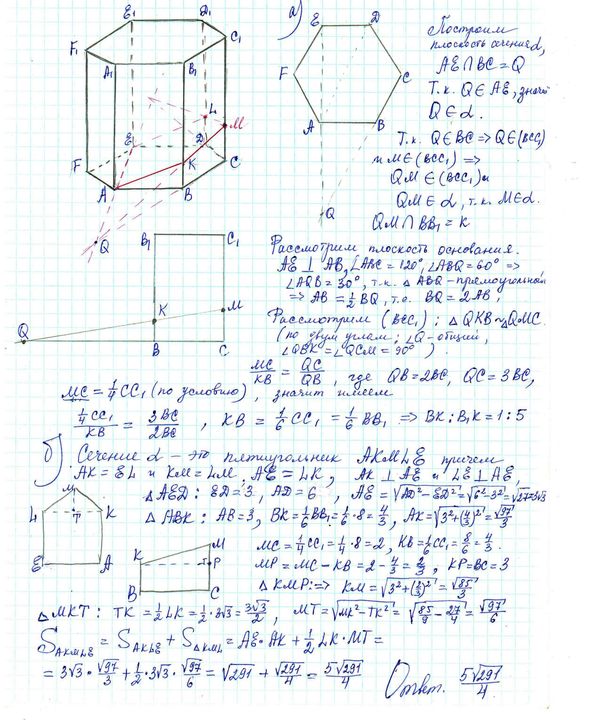 а)
Построим
плоскость сечения α,
AE ∩ BC = Q
Т.к. Q ∈ AE, значит
Q ∈ α.
Т.к. Q ∈ BC ⇒ Q ∈ (BCC₁)
и M ∈ (BCC₁) ⇒
QM ∈ (BCC₁) и
QM ∈ α, т.к. M ∈ α.
QM ∩ BB₁ = K
E₁ D₁ F₁ C₁ A₁ B₁ L M E₁ D K F C A B Q
E D F C A B Q
B₁ C₁ K M Q B C
Рассмотрим плоскость основания.
AE ⊥ AB, ∠ABC = 120°, ∠ABQ = 60° ⇒
∠AQB = 30°, т.к. △ABQ – прямоугольный
⇒ AB = ½ BQ, т.о. BQ = 2AB;
Рассмотрим (BCC₁); △QKB ~ △QMC.
(по двум углам; ∠Q – общий,
∠QBK = ∠QCM = 90°).
MC/KB = QC/QB, где QB = 2BC, QC = 3BC,
MC = ¼ CC₁ (по условию), значит имеем
¼CC₁/KB = 3BC/2BC, KB = ⅙ CC₁ = ⅙ BB₁ ⇒ BK : B₁K = 1 : 5
б) Сечение α – это пятиугольник AKMLE причем
AK = EL и KM = LM, AE = LK, AK ⊥ AE и LE ⊥ AE
△AED: ED = 3, AD = 6, AE = √(AD² − ED²) = √(6² − 3²) = √27 = 3√3
△ABK: AB = 3, BK = ⅙ BB₁ = ⅙ · 8 = 4/3, AK = √(3² + (4/3)²) = √97/3
M L K T E A
MC = ¼ CC₁ = ¼ · 8 = 2, KB = ⅙ CC₁ = 8/6 = 4/3.
MP = MC − KB = 2 − 4/3 = 2/3, KP = BC = 3
△KMP: ⇒ KM = √(3² + (2/3)²) = √85/3
M K P B C
△MKT: TK = ½ LK = ½ · 3√3 = 3√3/2, MT = √(MK² − TK²) = √(85/9 − 27/4) = √97/6
S_AKMLE = S_AKLE + S_△KML = AE · AK + ½ LK · MT =
= 3√3 · √97/3 + ½ · 3√3 · √97/6 = √291 + √291/4 = 5√291/4
Ответ. 5√291/4.